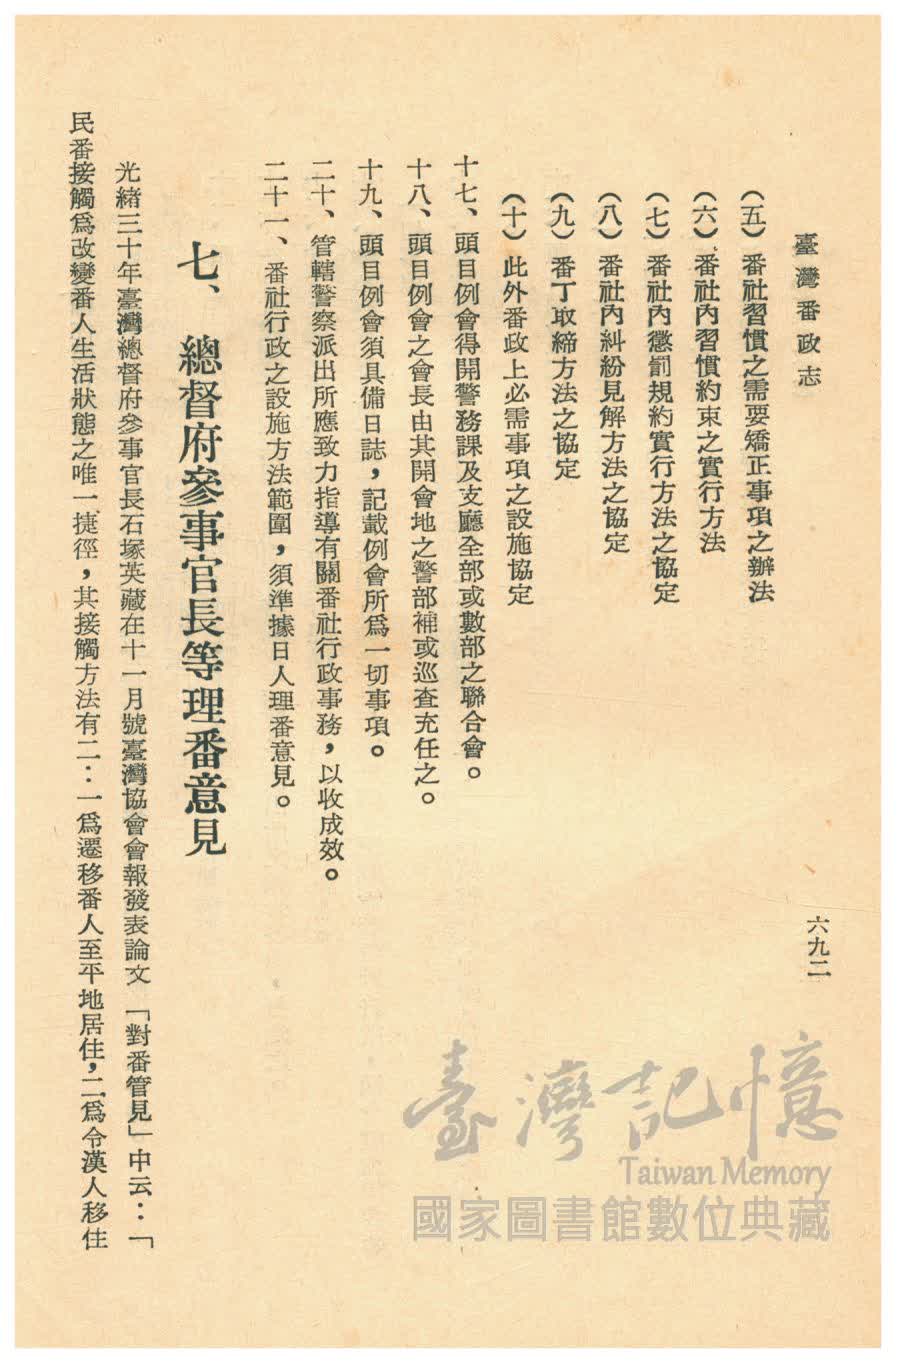 臺灣番政志
六九二
(五)番社習慣之需要矯正事項之辦法
(六)番社內習慣約束之實行方法
(七)番社內懲罰規約實行方法之協定
(八)番社內糾紛見解方法之協定
(九)番丁取締方法之協定
(十)此外番政上必需事項之設施協定
十七、頭目例會得開警務課及支廳全部或數部之聯合會。
十八、頭目例會之會長由其開會地之警部補或巡查充任之。
十九、頭目例會須具備日誌,記載例會所爲一切事項。
二十、管轄警察派出所應致力指導有關番社行政事務,以收成效。
二十一、番社行政之設施方法範圍,須準據日人理番意見。
七、總督府參事官長等理番意見
光緒三十年臺灣總督府參事官長石塚英藏在十一月號臺灣協會會報發表論文「對番管見」中云:「
民番接觸爲改變番人生活狀態之唯一捷徑,其接觸方法有二:一爲遷移番人至平地居住,二爲令漢人移住
臺灣記憶
Taiwan Memory
國家圖書館數位典藏